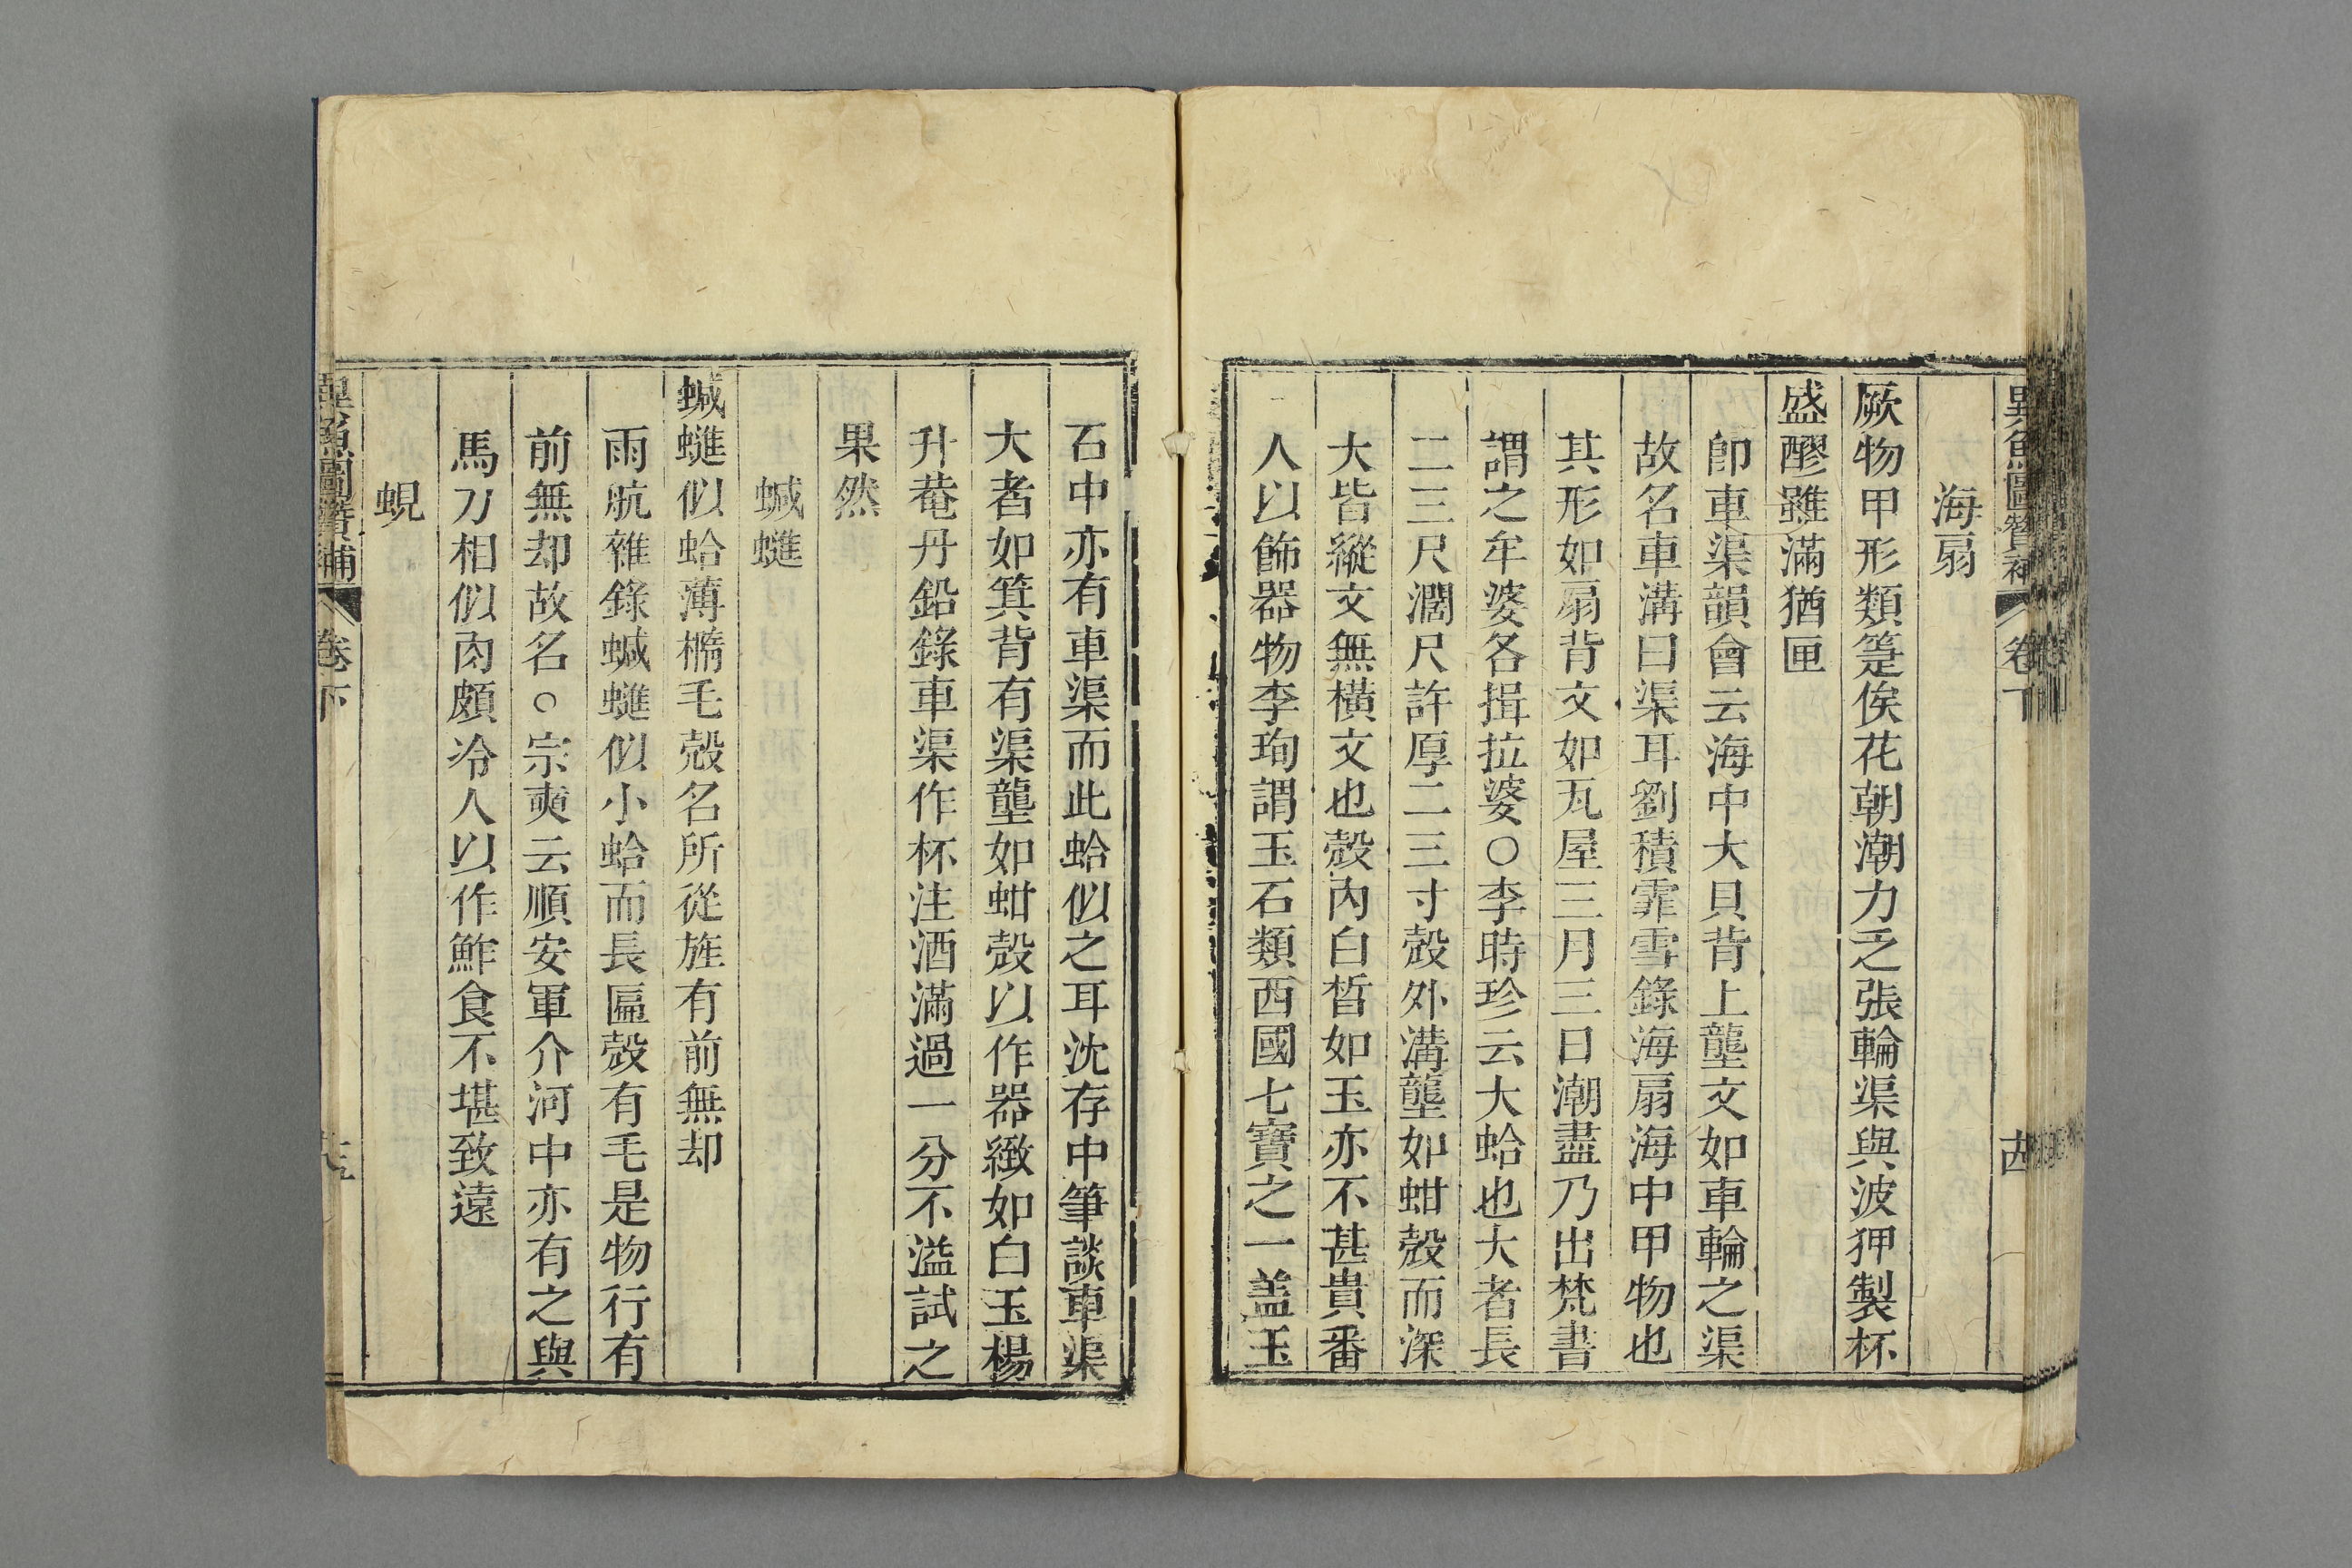 異魚圖贊補 卷下
海扇
厥物甲形類箑俟花朝潮力乏張輪渠與波狎製杯
盛醪雖滿猶匣
卽車渠韻會云海中大貝背上壟文如車輪之渠
故名車溝曰渠耳劉積霏雪錄海扇海中甲物也
其形如扇背文如瓦屋三月三日潮盡乃出梵書
謂之牟婆各揖拉婆○李時珍云大蛤也大者長
二三尺濶尺許厚二三寸殼外溝壟如蚶殼而深
大皆縱文無橫文也殼內白皙如玉亦不甚貴番
人以飾器物李珣謂玉石類西國七寶之一盖玉
石中亦有車渠而此蛤似之耳沈存中筆談車渠
大者如箕背有渠壟如蚶殼以作器緻如白玉楊
升菴丹鉛錄車渠作杯注酒滿過一分不溢試之
果然
蝛䗯
蝛䗯似蛤薄橢毛殼名所從旌有前無却
雨航雜錄蝛䗯似小蛤而長匾殼有毛是物行有
前無却故名○宗奭云順安軍介河中亦有之與
馬刀相似肉頗冷人以作鮓食不堪致遠
蜆
異魚圖贊補 卷下